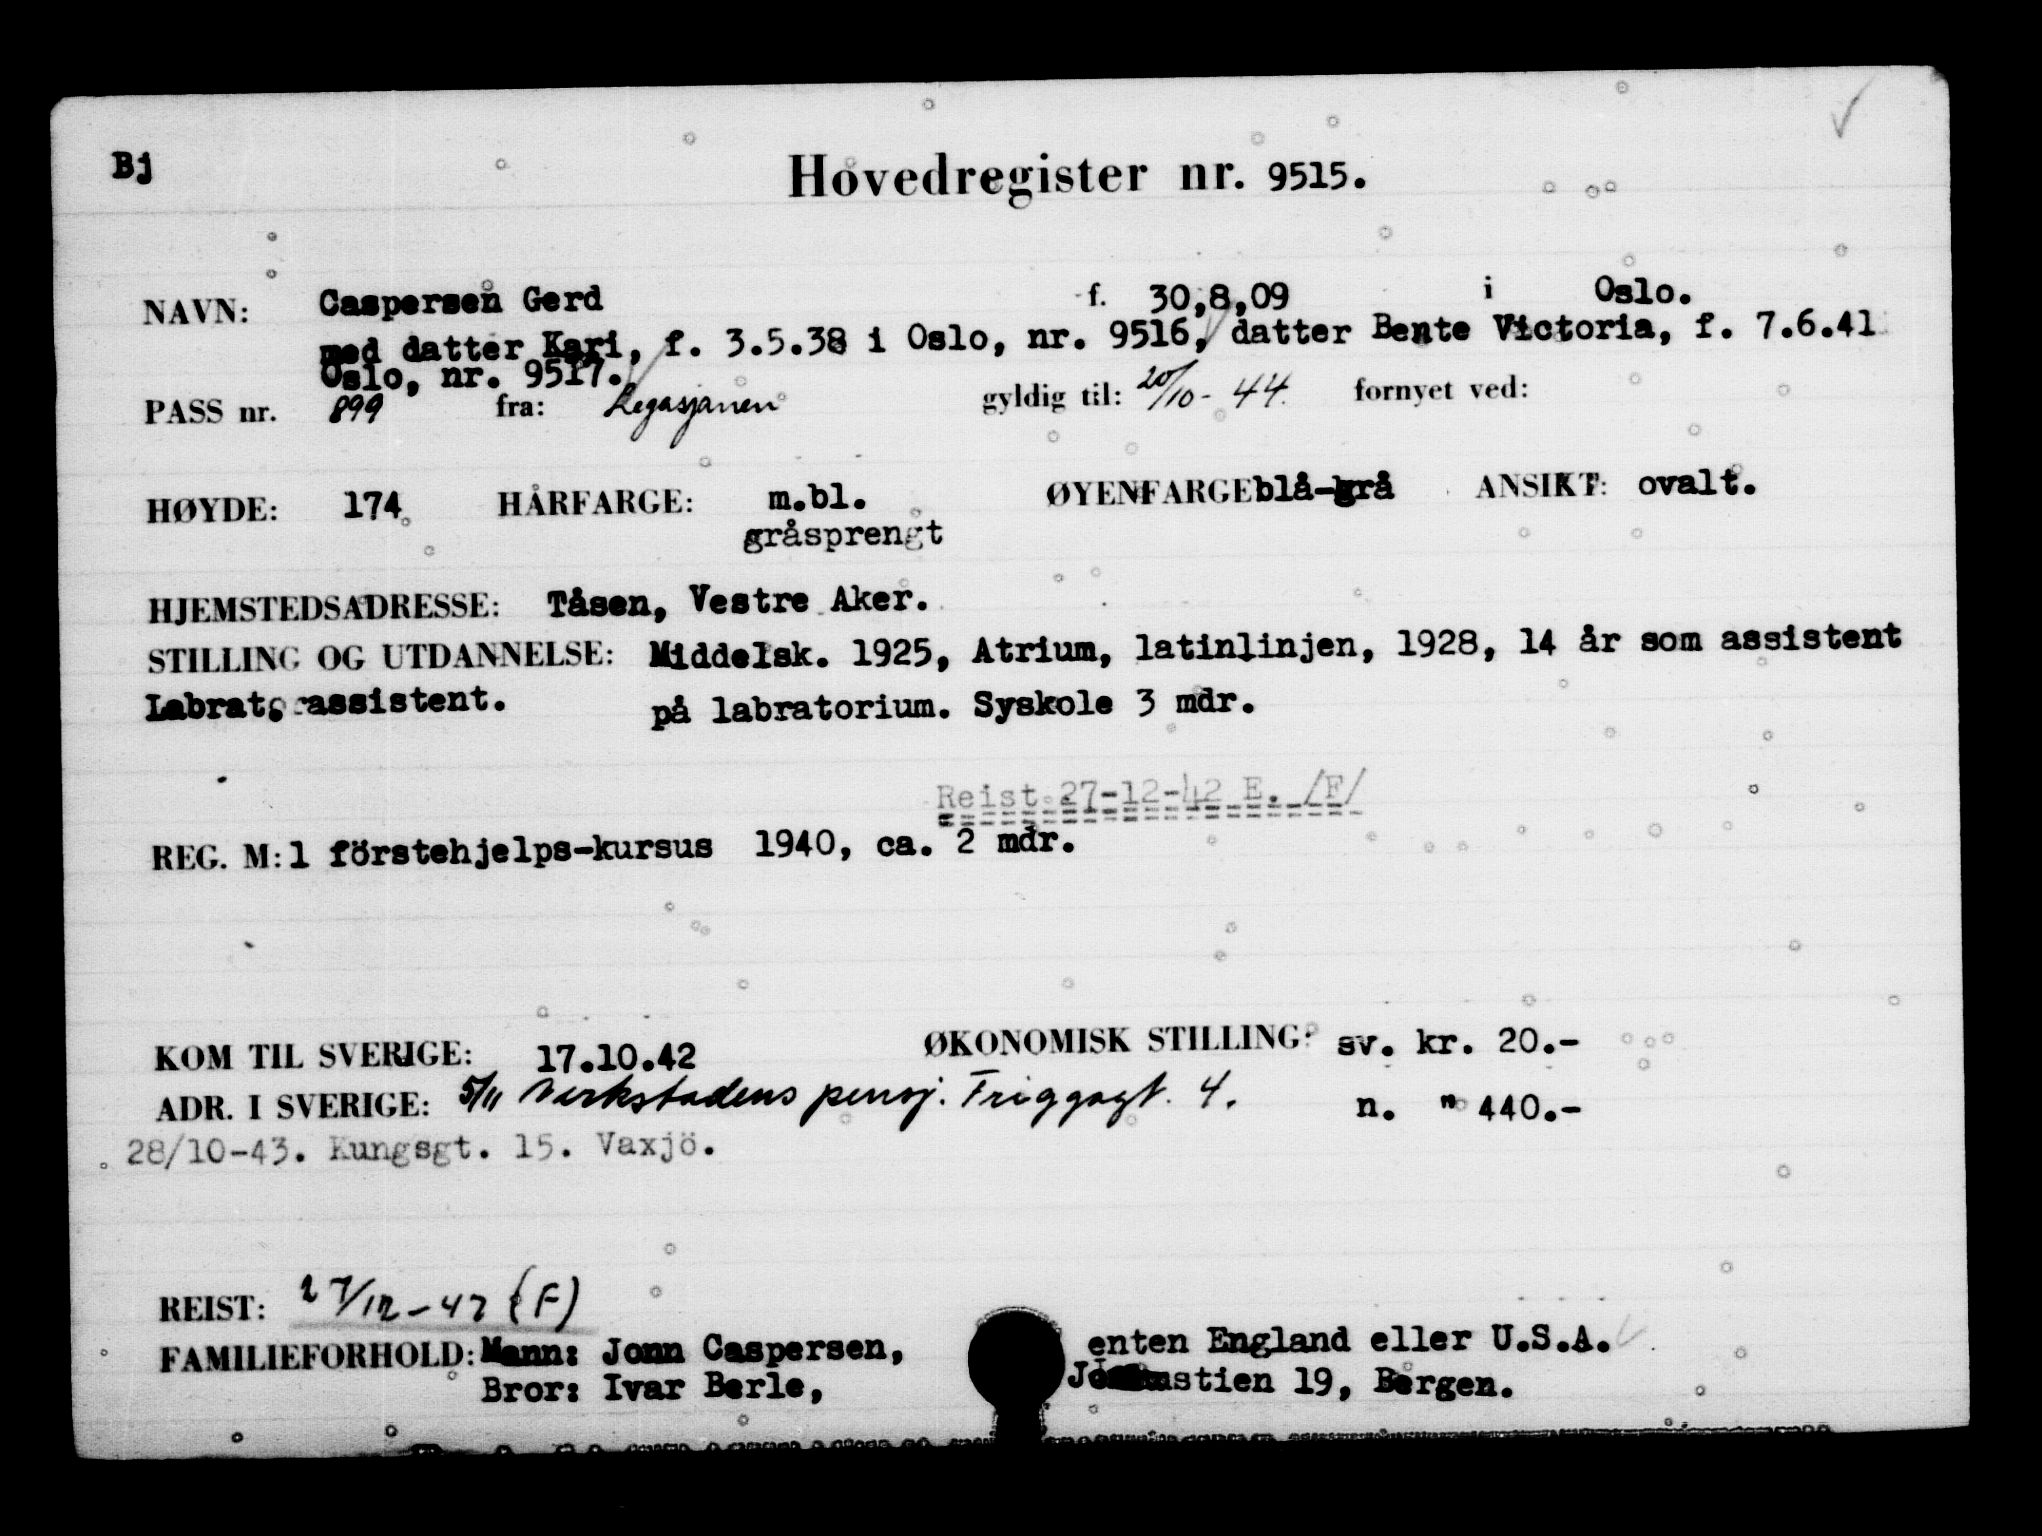 Bj
Hovedregister nr. 9515.
NAVN: Caspersen Gerd f. 30,8,09 i Oslo.
med datter Kari, f. 3.5.38 i Oslo, nr. 9516, datter Bente Victoria, f. 7.6.41
Oslo, nr. 9517.
PASS nr. 899 fra: Legasjonen gyldig til: 20/10-44. fornyet ved:
HØYDE: 174 HÅRFARGE: m.bl. ØYENFARGE blå-grå ANSIKT: ovalt.
gråsprengt
HJEMSTEDSADRESSE: Tåsen, Vestre Aker.
STILLING OG UTDANNELSE: Middelsk. 1925, Atrium, latinlinjen, 1928, 14 år som assistent
Labratorassistent. på labratorium. Syskole 3 mdr.
Reist 27-12-42 E. /F/
REG. M: 1 förstehjelps-kursus 1940, ca. 2 mdr.
KOM TIL SVERIGE: 17.10.42 ØKONOMISK STILLING: sv. kr. 20.-
ADR. I SVERIGE: 5/11 Verkstadens pensj. Friggagt. 4. n. " 440.-
28/10-43. Kungsgt. 15. Vaxjö.
REIST: 27/12-42 (F)
FAMILIEFORHOLD: Mann: Jonn Caspersen, enten England eller U.S.A.
Bror: Ivar Berle, 19, Bergen.